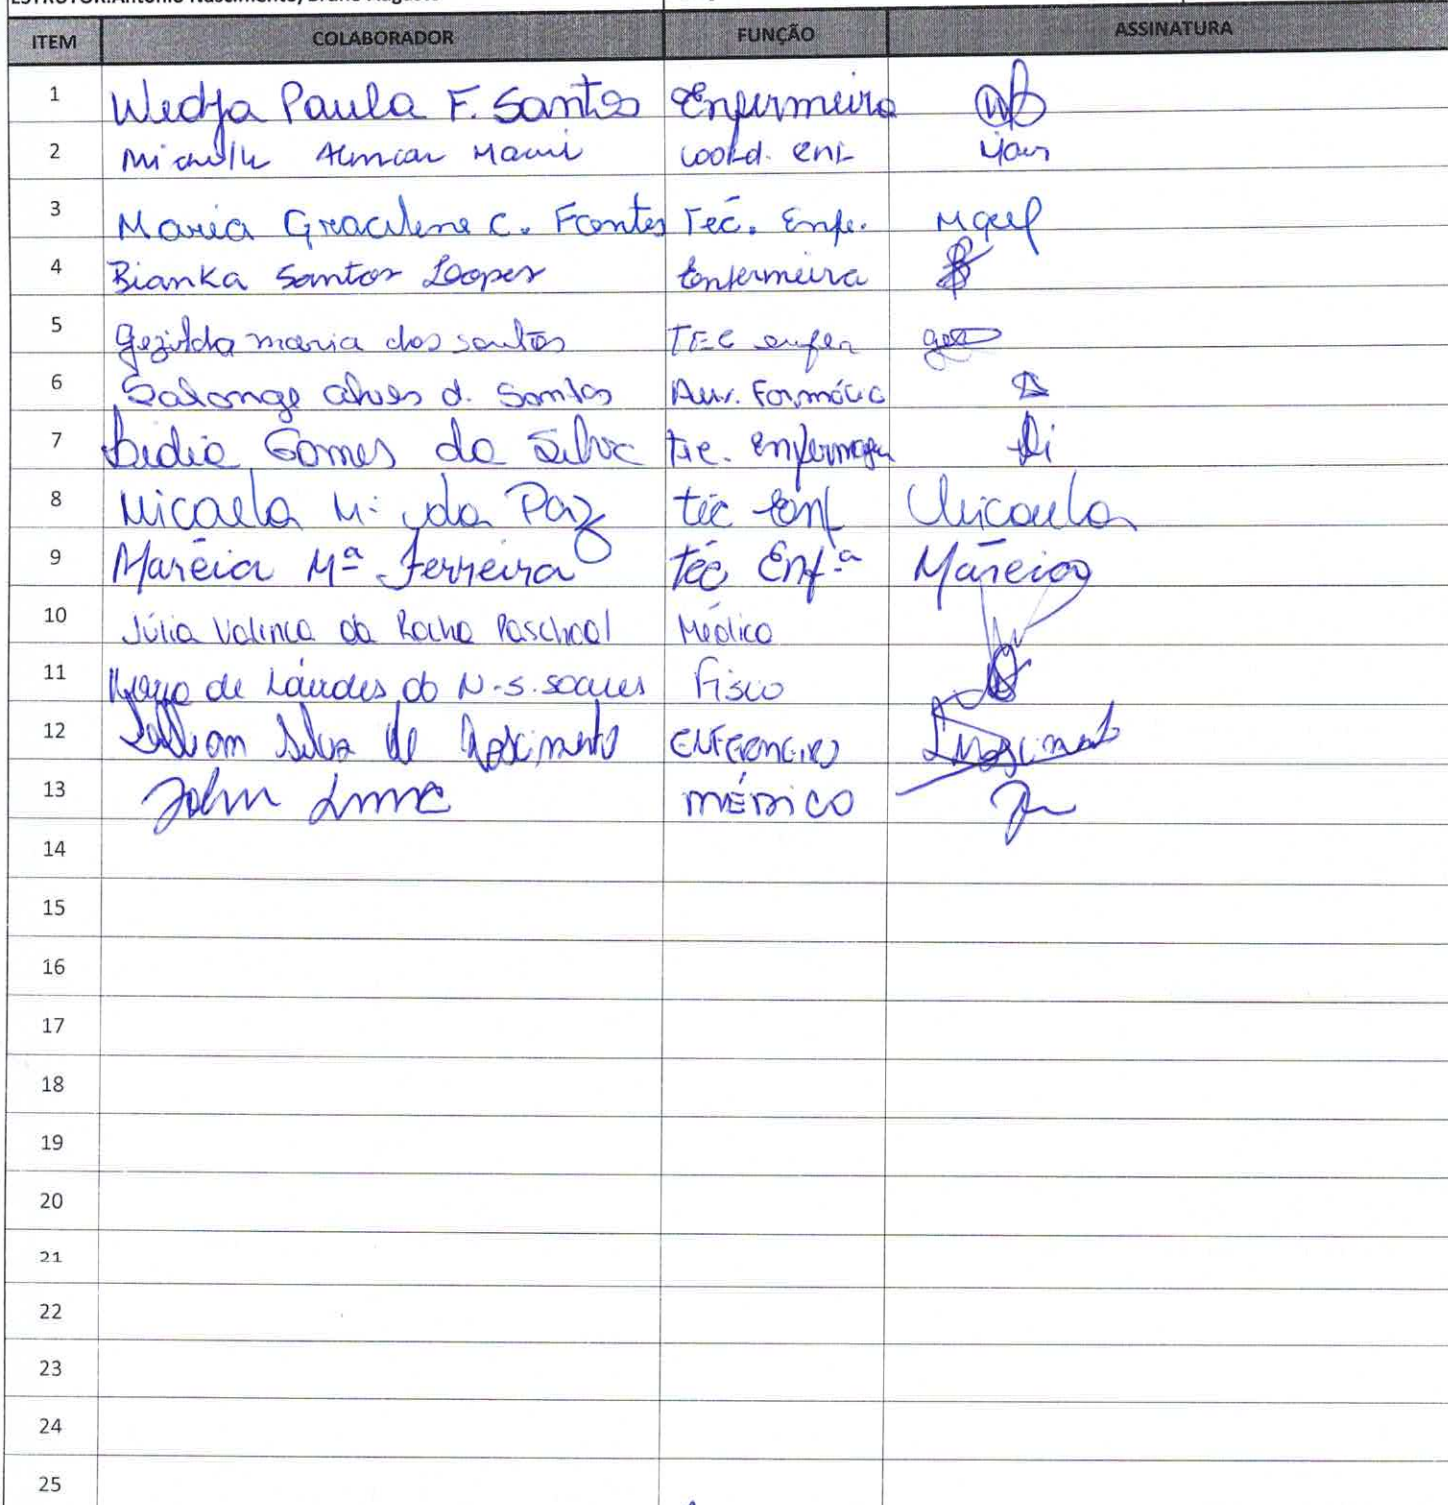 ESTRUTOR:Antonio Nascimento/Bruno Augusto
ITEM COLABORADOR FUNÇÃO ASSINATURA
1 Wedja Paula F. Santos Enfermeira
2 Michelle Coord. Enf
3 Maria Gracilene C. Fontes Tec. Enfe.
4 Bianka Santos Lopes Enfermeira
5 Gezilda maria dos santos TEC enfer
6 Salange alves d. Santos Aux. Farmácia
7 Lidia Gomes da Silva tec. Enfermagem Li
8 Micaela Mª da Paz tec Enf Micaela
9 Márcia Mª Ferreira téc Enf.ª Márcia
10 Júlia da Rocha Paschoal Médica
11 de Lourdes do N. S. Soares Fisio
12 Silva do Nascimento ENFERMEIRO
13 John MÉDICO
14
15
16
17
18
19
20
21
22
23
24
25